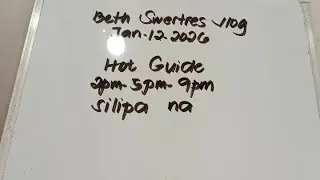 Beth Swertres vlog
Jan-12-2026
Hot Guide
2pm-5pm-9pm
silipa na